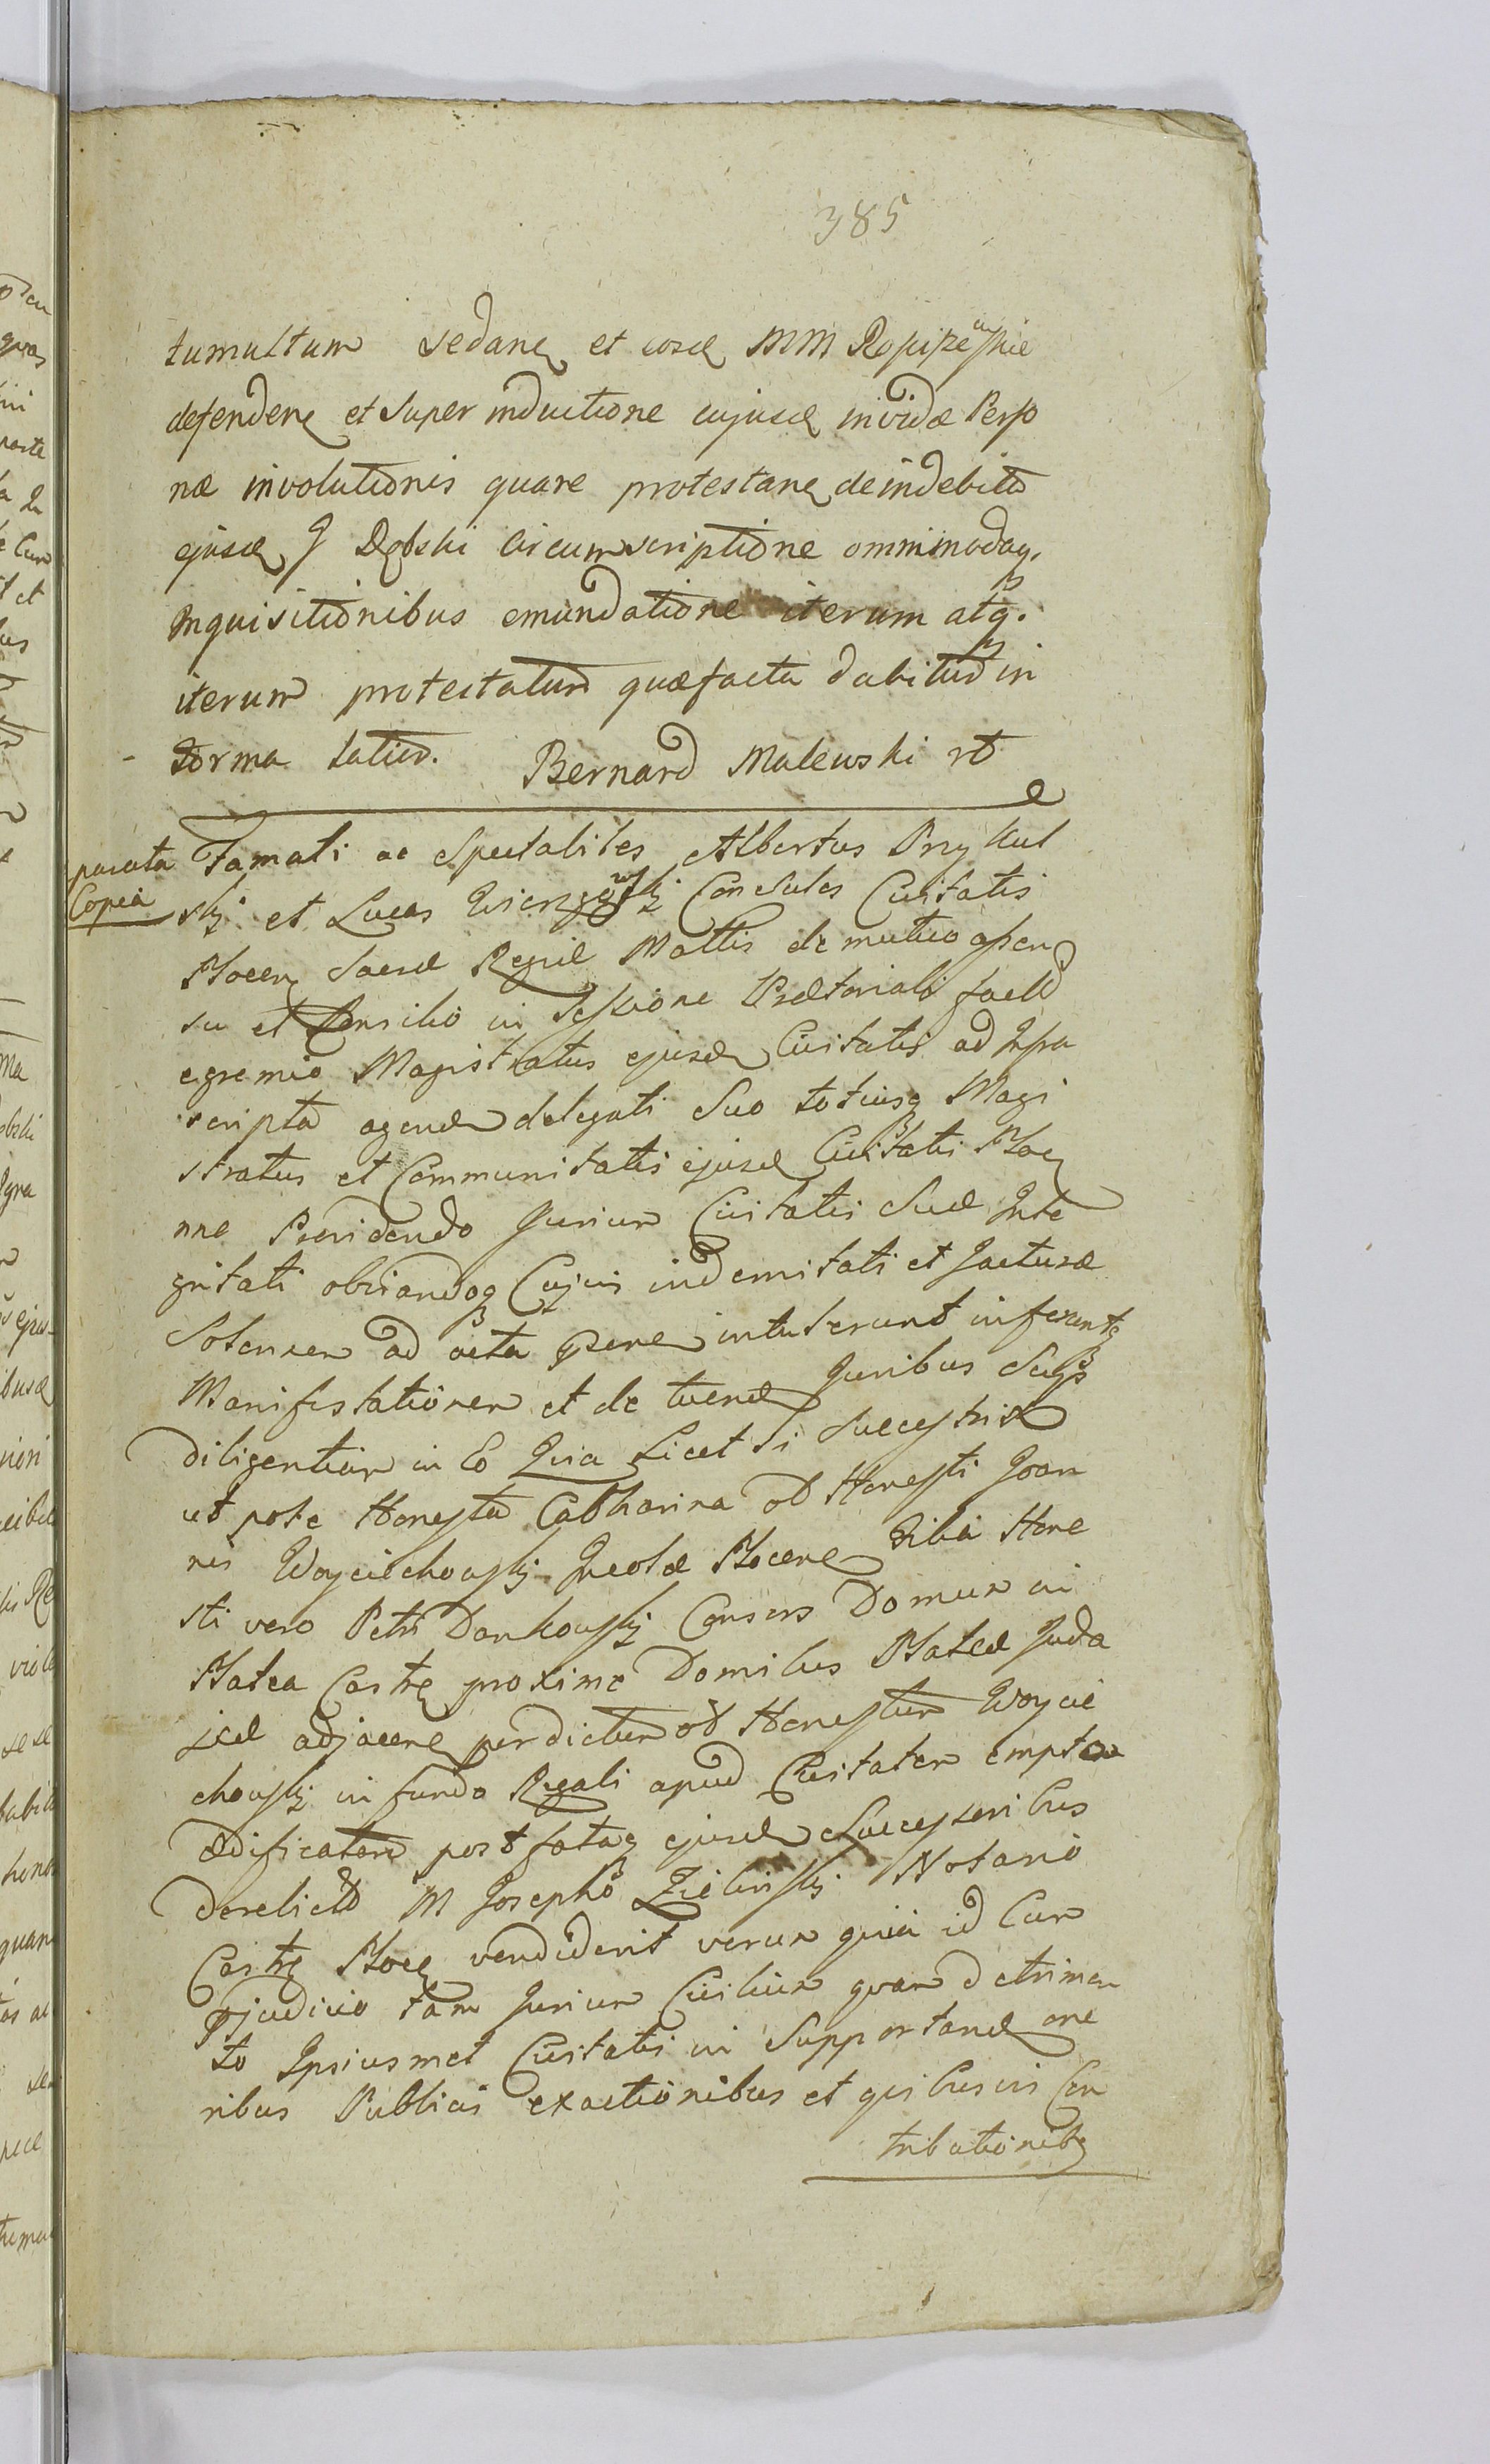 385
tumultum sedan et eosd MM
defenden et super inductione cujusd invidæ Perso
næ involutionis quare protestans de indebita
ejusd J Dębski circumscriptione omnimodaq,
Inquisitionibus emundatione iterum atq.
iterum protestatur quæ facta dabitur in
forma latior. Bernard Malewski
parata Copia
Famati ac Spectabiles Albertus
ski et Lucas Consules Civitatis
Plocen Sacræ Regiæ Mattis de mutuo assen
su et Consilio in Sessione Prætoriali facto
egremio Magistratus ejusd Civitatis ad Infra
scripta agend delegati Suo totiusq Magi
stratus et Communitatis ejusd Civitatis Ploce
nne Providendo Jurium Civitatis Suæ Inte
gritati obviandoq Cujus indemnitati et Jacturæ
Solenner ad acta præsen intulerunt inferuntq
Manifestationem et de tuend Juribus Suis
diligentiam in Eo Quia Licet Successrix
ut pote Honesta Catharina od Honesti Joan
nis Woyciechowski Incolæ Plocen Filia Hone
sti vero Petri Dankowski Consors Domum in
Platea Castren proxime Domibus Plateæ Juda
icæ adjacen per dictum od Honestum Woycie
chowski in fundo Regali apud Civitatem empto
ædificatam post fataq ejusd Successoribus
derelictam M Josepho Zielinski Notario
Castren Plocen vendiderit verum quia id Cum
Præjudicio tam Jurium Civilium quam detrimen
to Ipsiusmet Civitatis in Supportand one
ribus Publicis exactionibus et quibusvis Con
tributionibq